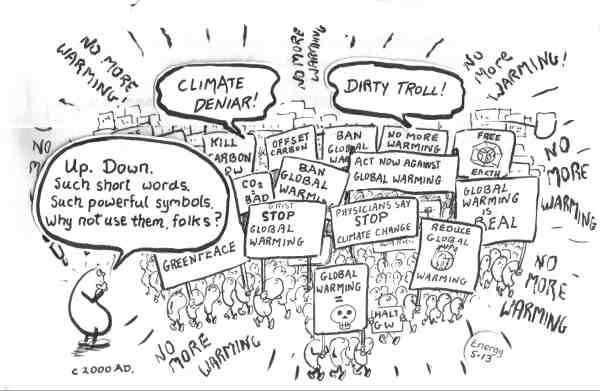 NO MORE
WARMING!
NO MORE
WARMING
NO MORE
WARMING!
CLIMATE
DENIAR!
DIRTY TROLL!
Up. Down.
Such short words.
Such powerful symbols.
Why not use them, folks?
KILL
CARBON
OFFSET
CARBON
BAN
GLOBAL
NO MORE
WARMING
FREE
EARTH
CO2
BAD
BAN
GLOBAL
WARMI
ACT NOW AGAINST
GLOBAL WARMING
GLOBAL
WARMING
IS
REAL
STOP
GLOBAL
WARMING
PHYSICIANS SAY
STOP
CLIMATE CHANGE
REDUCE
GLOBAL
WARMING
GREENPEACE
GLOBAL
WARMING
=
HALT
GW
NO
MORE
WARMING
NO
MORE
WARMING
NO MORE
WARMING
c 2000 AD.
Energy
5-13